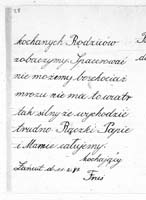 28
kochanych Rodziców
zobaczymy. Spacerować
nie możemy bo chociaż
mrozu nie ma to wiatr
tak silny że wychodzić
trudno Rączki Papie
i Mamie całujemy.
kochający
Łańcut d.